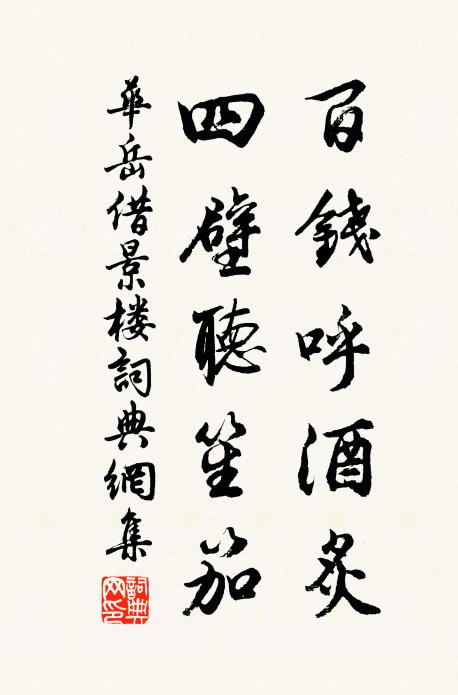 百錢呼酒炙
四壁聽笙笳
華岳借景楼詞典網集
詞典